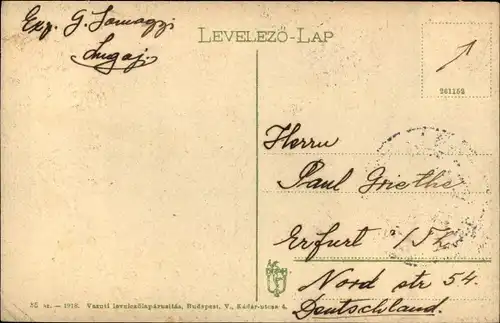 Exp. G. Somogyi
Lugoj.
LEVELEZŐ-LAP
261152
Herrn
Paul Griethe
Erfurt i/Th.
Nord str 54.
Deutschland.
sz. — 1916. Vasuti levelezőlapárusitás, Budapest, V., Kádár-utcza 4.